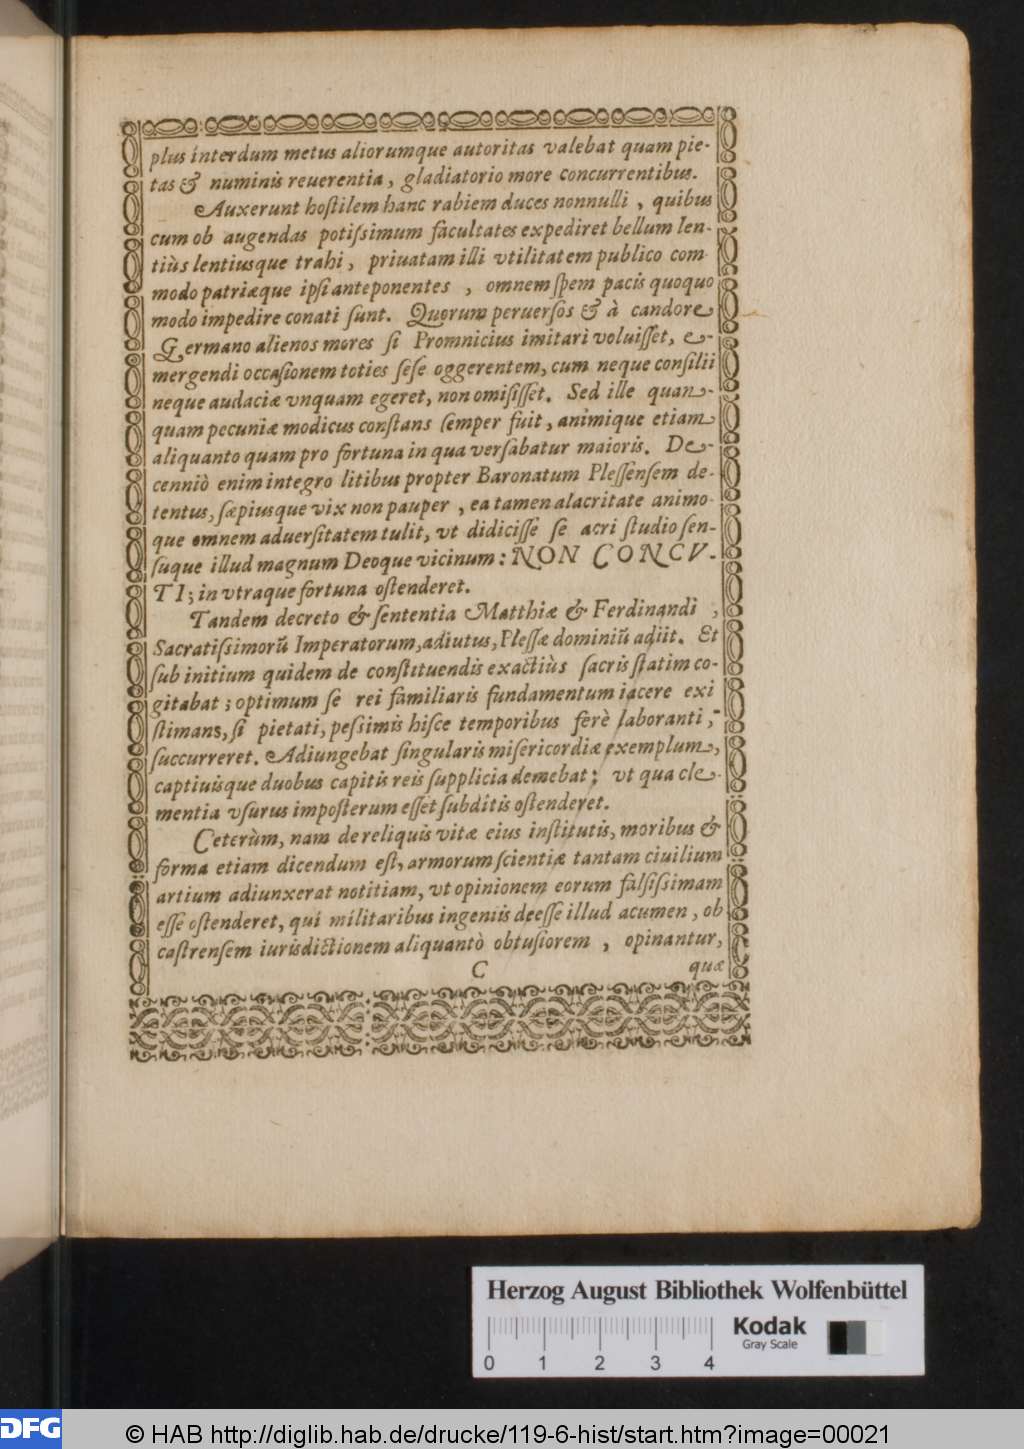 plus interdum metus aliorumque autoritas valebat quam pie-
tas & numinis reuerentia, gladiatorio more concurrentibus.
Auxerunt hostilem hanc rabiem duces nonnulli, quibus
cum ob augendas potissimum facultates expediret bellum len-
tiùs lentiusque trahi, priuatam illi vtilitatem publico com
modo patriæque ipsi anteponentes, omnem spem pacis quoquo
modo impedire conati sunt. Quorum peruersos & à candore
Germano alienos mores si Promnicius imitari voluisset, e-
mergendi occasionem toties sese oggerentem, cum neque consilii
neque audaciæ vnquam egeret, non omisisset. Sed ille quan-
quam pecuniæ modicus constans semper fuit, animique etiam
aliquanto quam pro fortuna in qua versabatur maioris. De-
cenniò enim integro litibus propter Baronatum Plessensem de-
tentus, sæpiusque vix non pauper, ea tamen alacritate animo-
que omnem aduersitatem tulit, vt didicisse se acri studio sen-
suque illud magnum Deoque vicinum: NON CONCV-
TI; in vtraque fortuna ostenderet.
Tandem decreto & sententia Matthiæ & Ferdinandi,
Sacratissimorũ Imperatorum, adiutus, Plessæ dominiũ adiit. Et
sub initium quidem de constituendis exactiùs sacris statim co-
gitabat; optimum se rei familiaris fundamentum iacere exi
stimans, si pietati, pessimis hisce temporibus ferè laboranti,
succurreret. Adiungebat singularis misericordiæ exemplum,
captiuisque duobus capitis reis supplicia demebat; vt qua cle-
mentia vsurus imposterum esset subditis ostenderet.
Ceterùm, nam de reliquis vitæ eius institutis, moribus &
forma etiam dicendum est, armorum scientiæ tantam ciuilium
artium adiunxerat notitiam, vt opinionem eorum falsissimam
esse ostenderet, qui militaribus ingeniis deesse illud acumen, ob
castrensem iurisdictionem aliquantò obtusiorem, opinantur,
C quæ
Herzog August Bibliothek Wolfenbüttel
Kodak
Gray Scale
0 1 2 3 4
DFG © HAB http://diglib.hab.de/drucke/119-6-hist/start.htm?image=00021